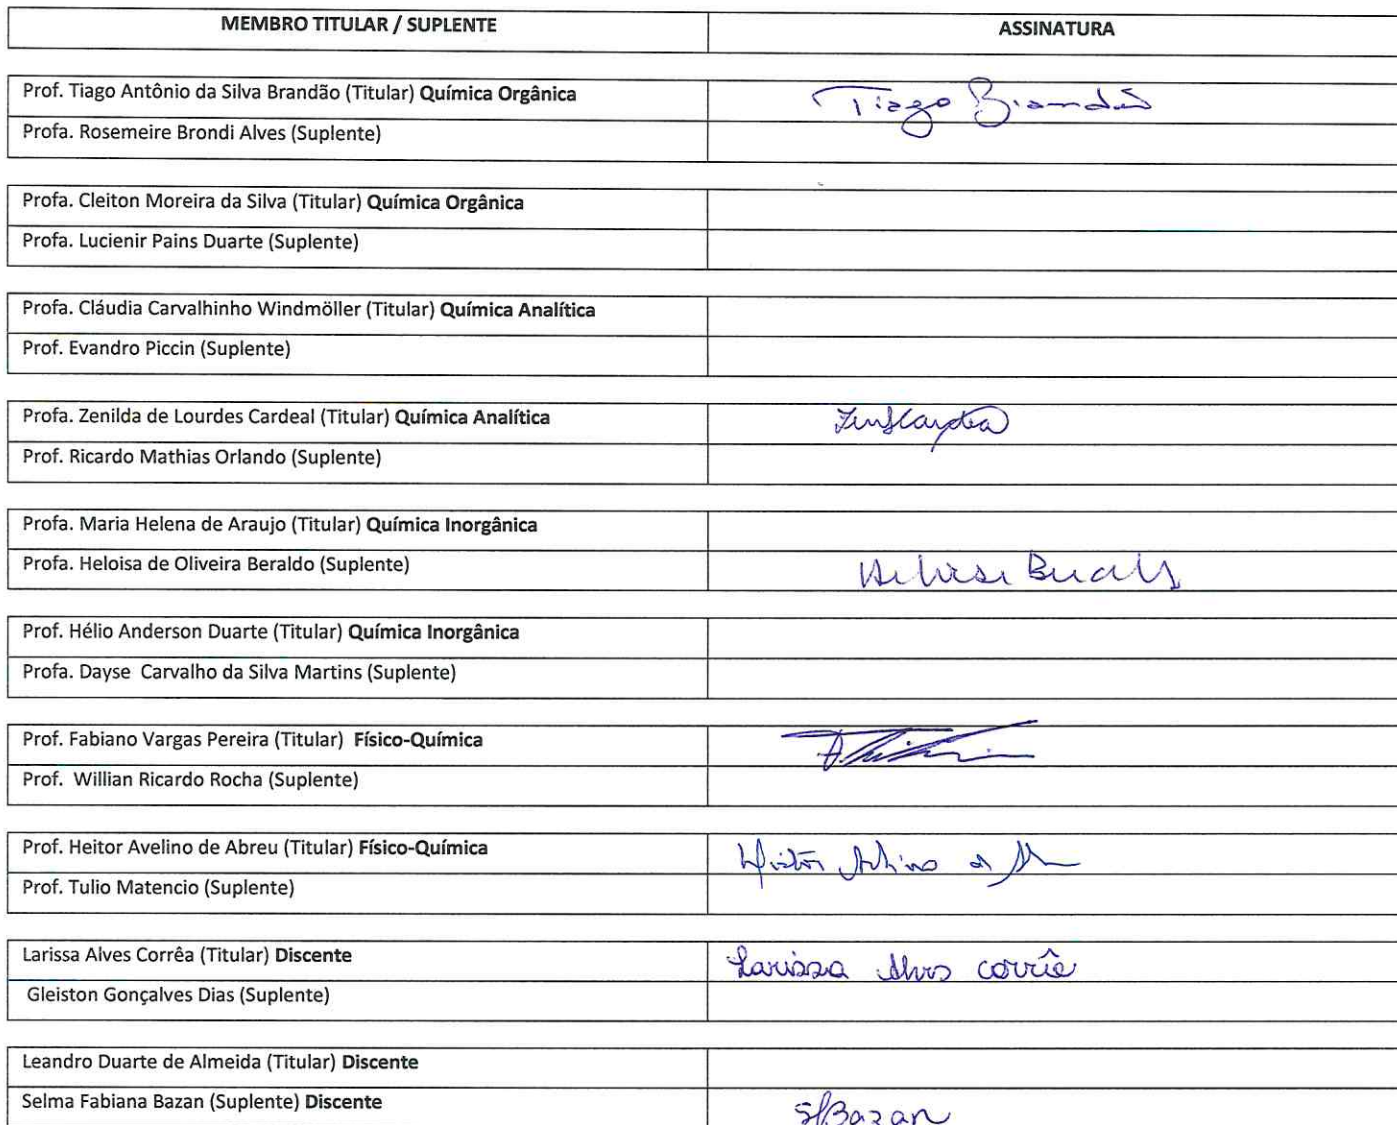 MEMBRO TITULAR / SUPLENTE ASSINATURA
Prof. Tiago Antônio da Silva Brandão (Titular) Química Orgânica Tiago Brandão
Profa. Rosemeire Brondi Alves (Suplente)
Profa. Cleiton Moreira da Silva (Titular) Química Orgânica
Profa. Lucienir Pains Duarte (Suplente)
Profa. Cláudia Carvalhinho Windmöller (Titular) Química Analítica
Prof. Evandro Piccin (Suplente)
Profa. Zenilda de Lourdes Cardeal (Titular) Química Analítica
Prof. Ricardo Mathias Orlando (Suplente)
Profa. Maria Helena de Araujo (Titular) Química Inorgânica
Profa. Heloisa de Oliveira Beraldo (Suplente)
Prof. Hélio Anderson Duarte (Titular) Química Inorgânica
Profa. Dayse Carvalho da Silva Martins (Suplente)
Prof. Fabiano Vargas Pereira (Titular) Físico-Química
Prof. Willian Ricardo Rocha (Suplente)
Prof. Heitor Avelino de Abreu (Titular) Físico-Química
Prof. Tulio Matencio (Suplente)
Larissa Alves Corrêa (Titular) Discente Larissa Alves Corrêa
Gleiston Gonçalves Dias (Suplente)
Leandro Duarte de Almeida (Titular) Discente
Selma Fabiana Bazan (Suplente) Discente SFBazan